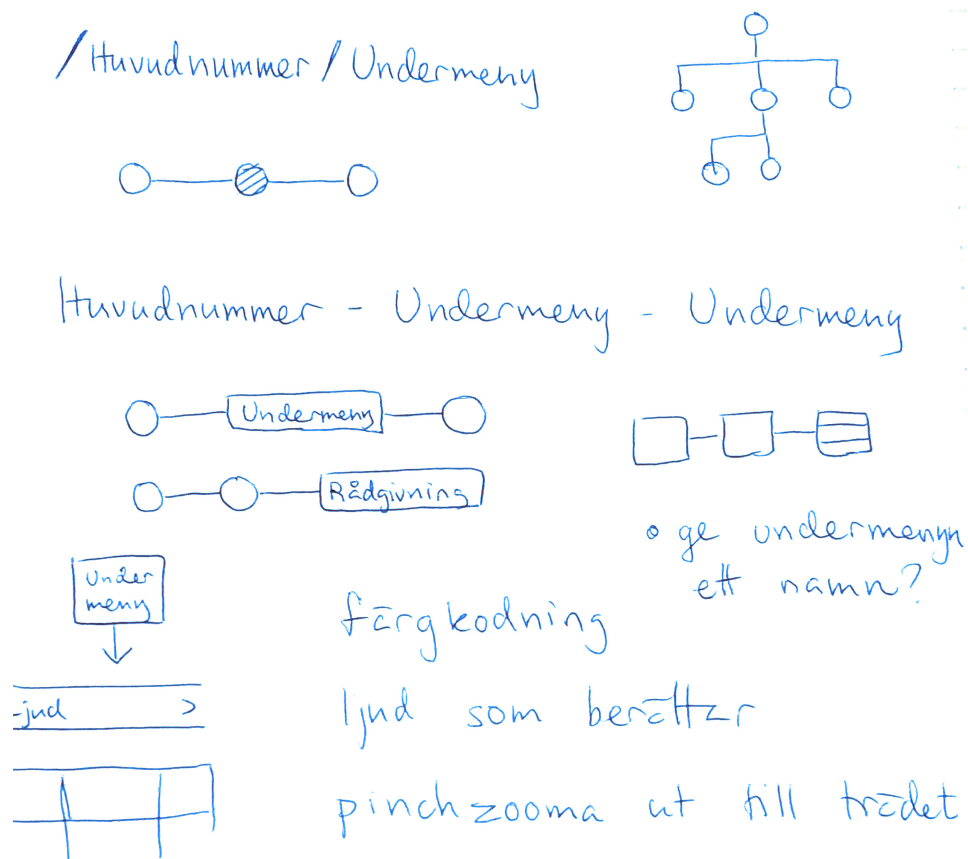 /Huvudnummer/Undermeny
Huvudnummer - Undermeny - Undermeny
Undermeny
Rådgivning
• ge undermenyn
ett namn?
Under
meny
färgkodning
-jud >
ljud som berättar
pinchzooma ut till trädet